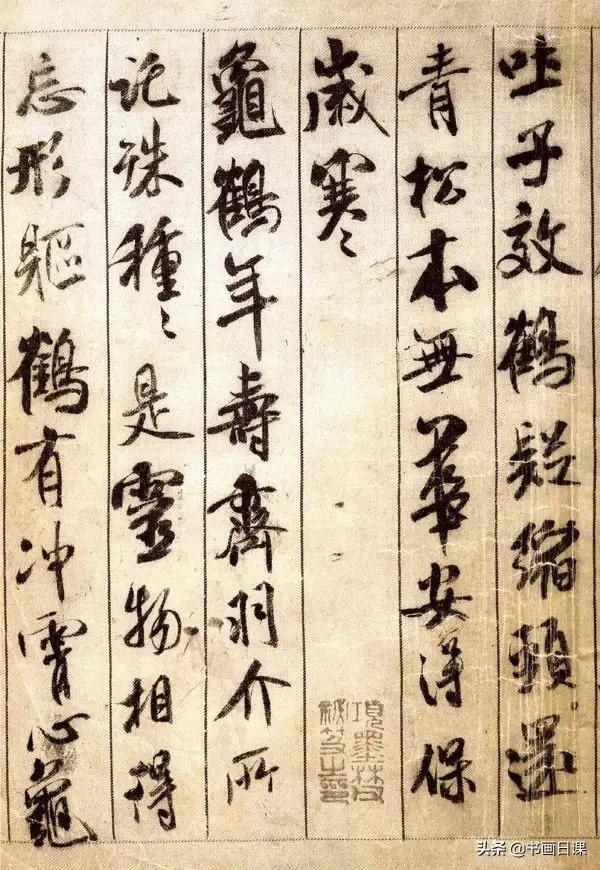 吐子效鶴疑縮頸還
青松本無華安得保
歲寒〻
龜鶴年壽齊羽介所
託殊種〻是靈物相得
忘形軀鶴有冲霄心龜
項墨林父
祕笈之印
头条 @书画日课